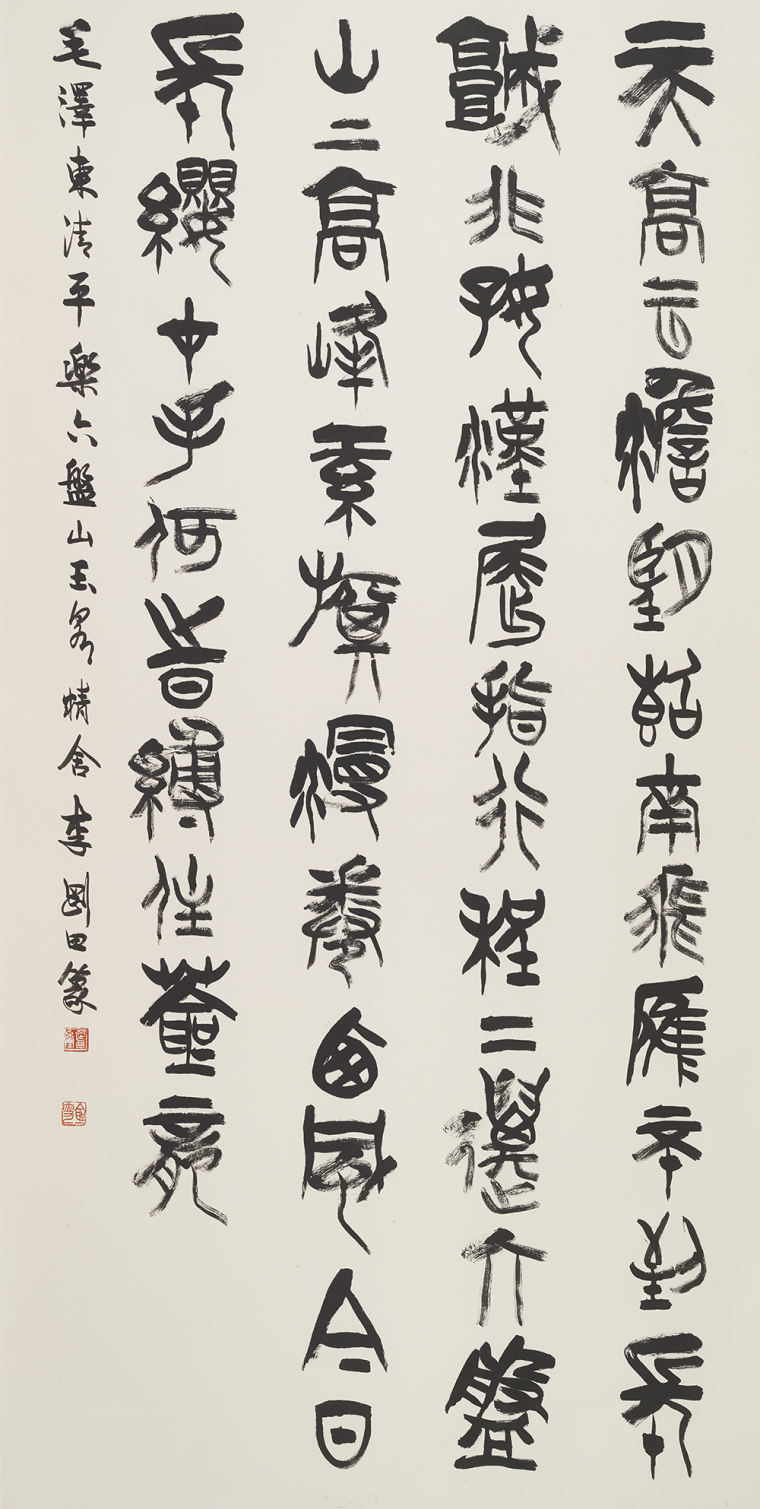 天高云澹望斷南飛雁不到長
城非好漢屈指行程二萬六盤
山上高峰紅旗漫卷西風今日
長纓在手何時縛住蒼龍
毛澤東清平樂六盤山玉泉精舍李剛田篆